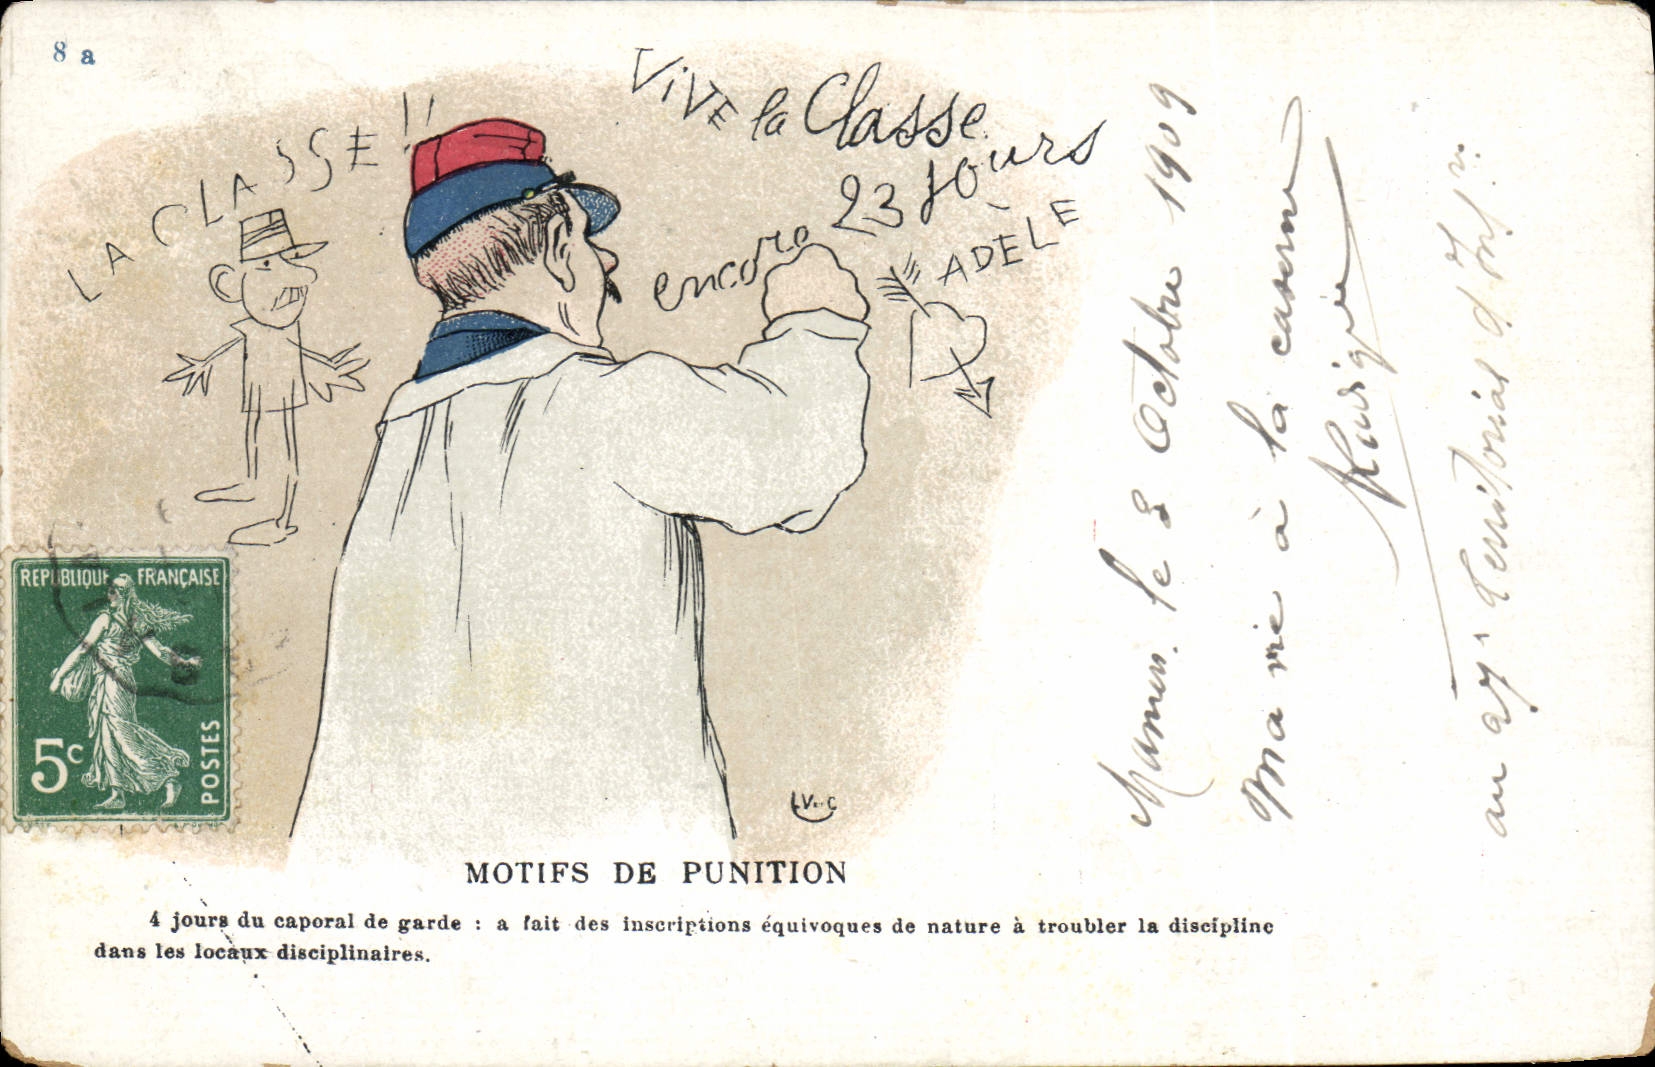 8 a
LA CLASSE !!
ViVE la Classe
encore 23 jours
ADÈLE
REPUBLIQUE FRANÇAISE
5c
POSTES
LV C
MOTIFS DE PUNITION
4 jours du caporal de garde : a fait des inscriptions équivoques de nature à troubler la discipline
dans les locaux disciplinaires.
le 3 Octobre 1909
Ma vie à la caserne
au 27e Territorial d'Infie